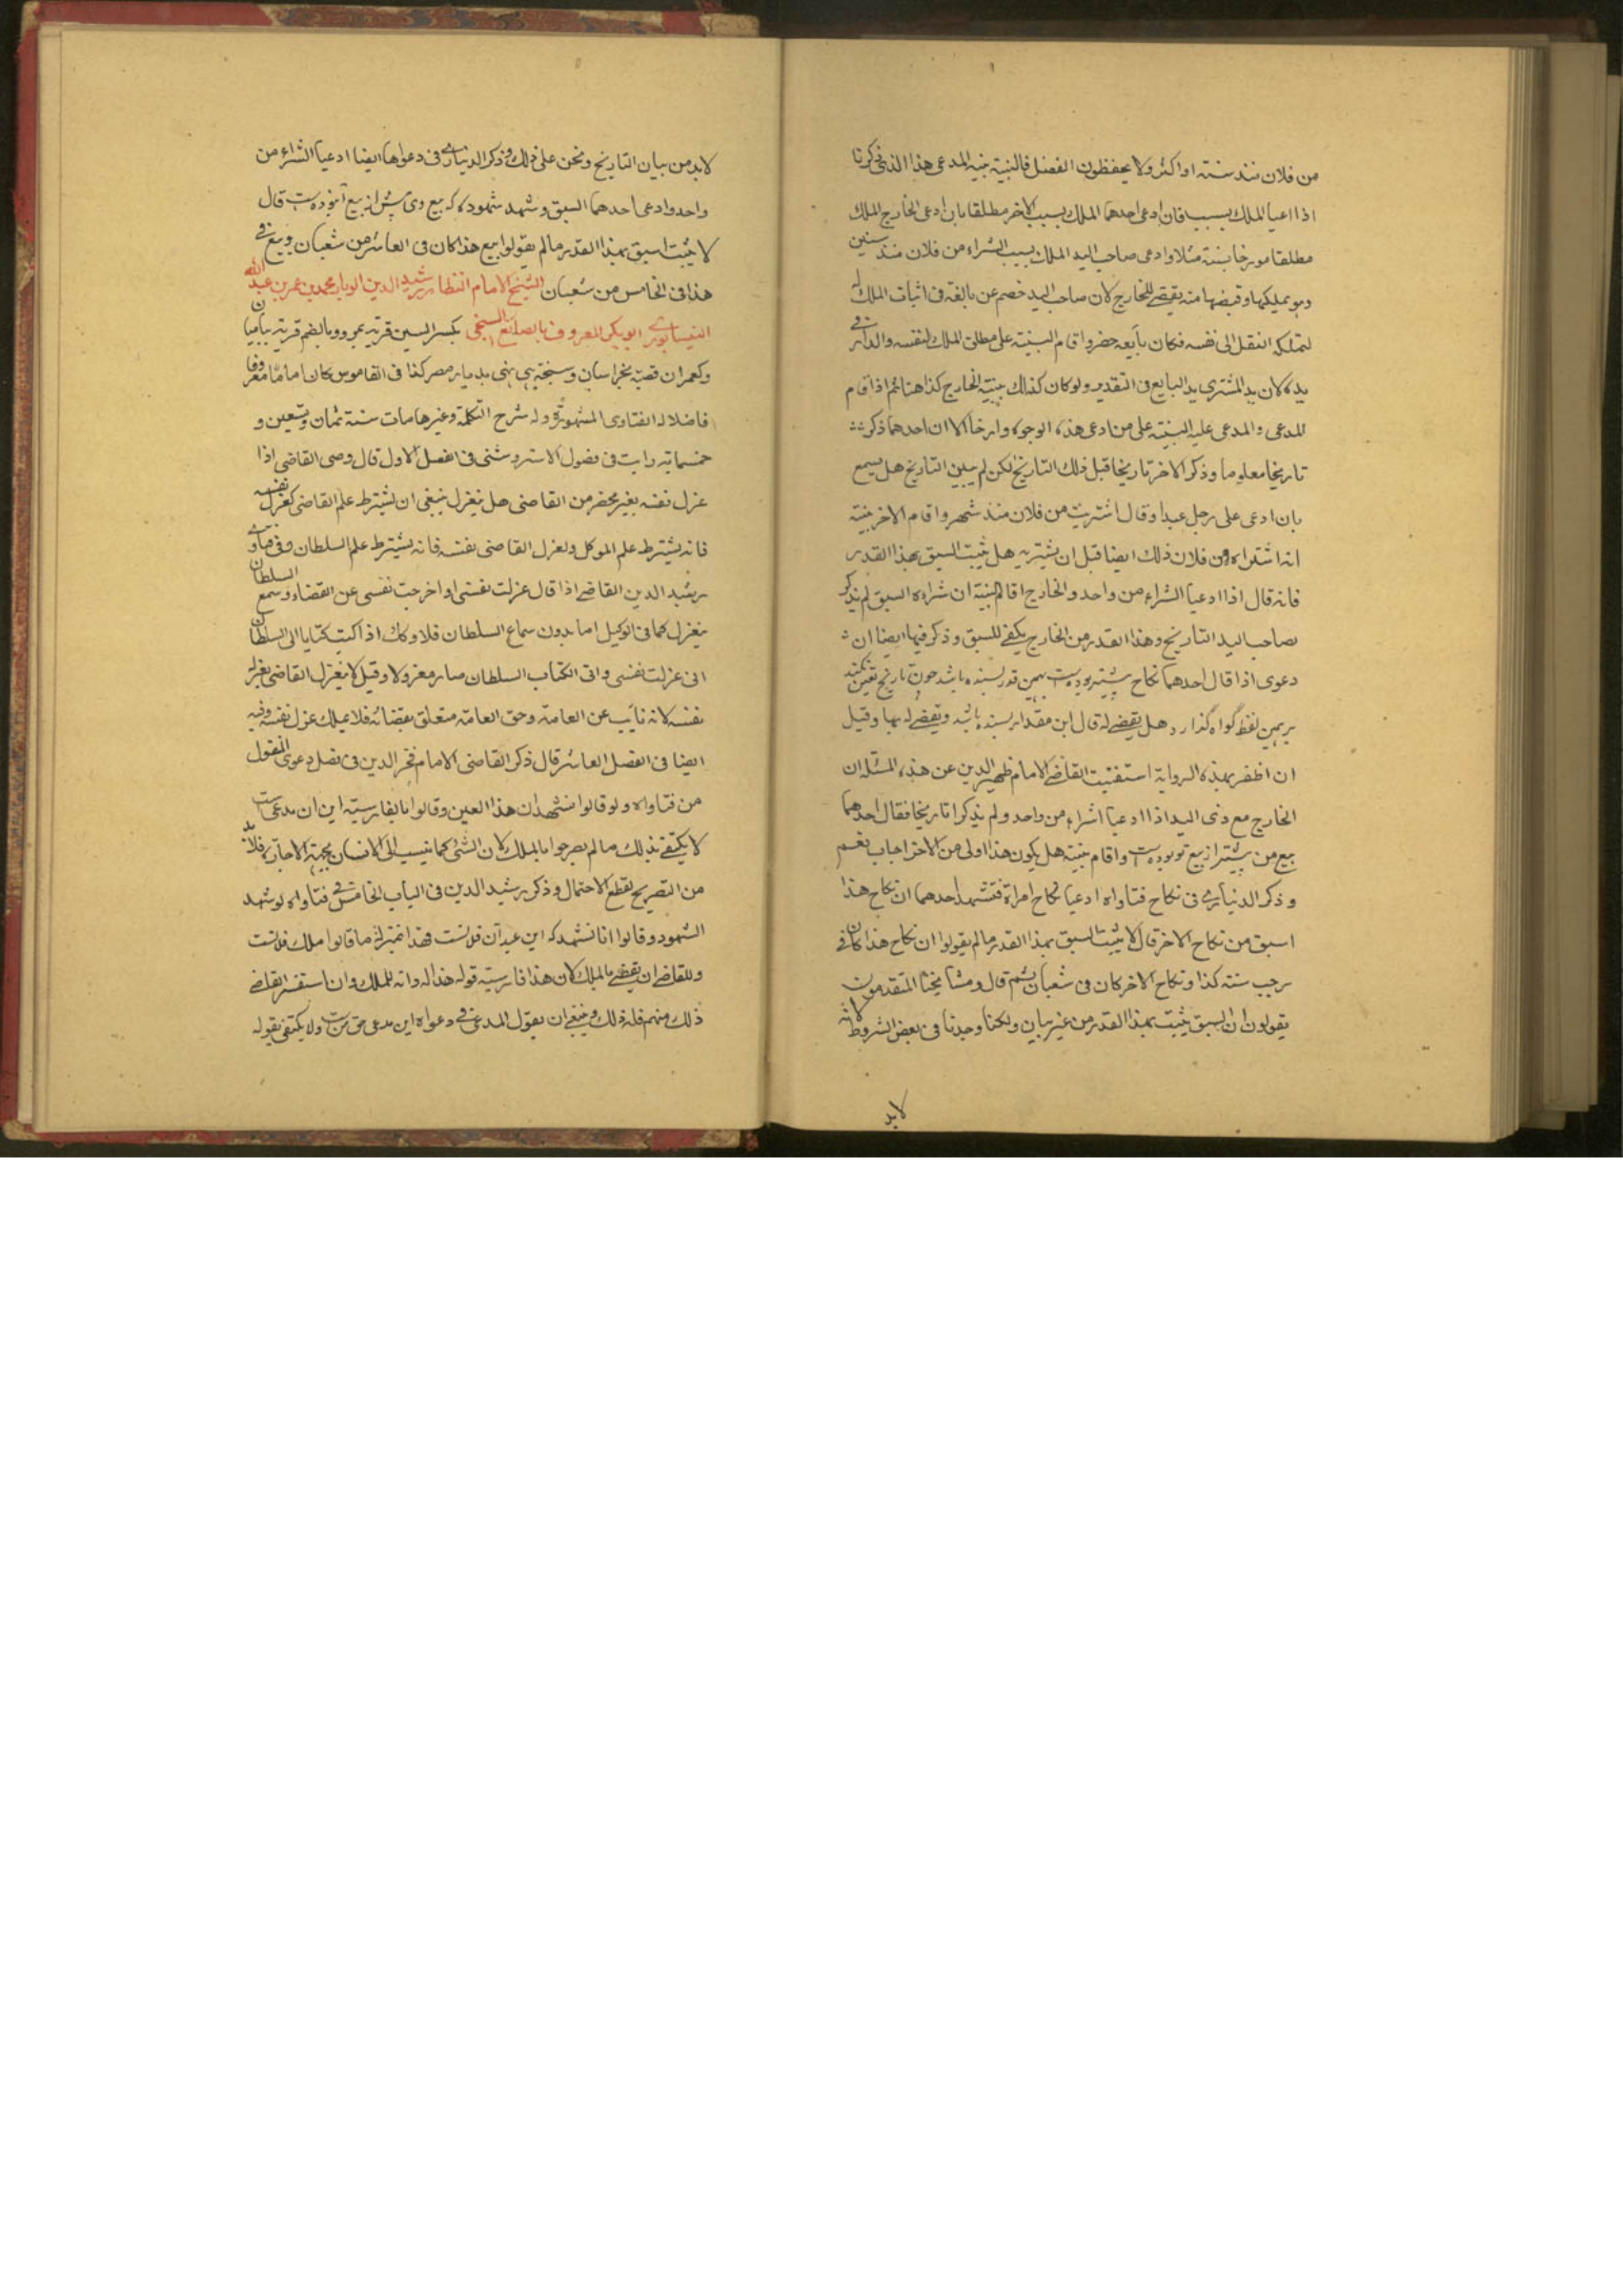 من فلان منذ سنة او اكثر ولا يحفظون الفضل فالبينة بينة المدعى هذا الذى ذكرنا
اذا ادعيا الملك بسبب فان ادعى احدهما الملك بسبب والاخر مطلقا بان ادعى الخارج الملك
مطلقا مورخا بسنة مثلا وادعى صاحب اليد الملك بسبب الشراء من فلان منذ سنين
وهو يملكها وقبضها منه يقضى للخارج لان صاحب اليد خصم عن بائعه فى اثبات الملك له
لتملكه انتقل الى نفسه فكان بائعه حضر واقام البينة على مطلق الملك لنفسه والدار فى
يده لان يد المشترى يد البايع فى التقدير ولو كان كذلك بينة الخارج كذا هنا ثم اذا اقام
المدعى والمدعى عليه البينة على من ادعى هذه الوجوه وارخا الا ان احدهما ذكر
تاريخا معلوما وذكر الاخر تاريخا قبل ذلك التاريخ لكن لم يبين التاريخ هل يسمع
بان ادعى على رجل عبدا وقال اشتريت من فلان منذ شهر واقام الاخر بينة
انه اشتراه من فلان ذلك ايضا قبل ان يشتريه هل يثبت السبق بهذا القدر
فانه قال اذا ادعيا الشراء من واحد والخارج اقام البينة ان شراءه اسبق لم يذكر
صاحب اليد التاريخ وهذا القدر من الخارج يكفى للسبق وذكر فيها ايضا ان
دعوى اذا قال احدهما نكاح بيشتر بوده است بهمين قدر بسنده باشد چون تاريخ تعين نكند
بر همين لفظ گواه گذارد هل يقضى له قال اين مقدار بسنده باشد ويقضى له بها وقيل
ان اظفر بهذه الرواية استفتيت القاضى الامام ظهير الدين عن هذه المسئلة ان
الخارج مع ذى اليد اذا ادعيا اشراء من واحد ولم يذكرا تاريخا فقال احدهما
بيع من بيشتر از بيع تو بوده است واقام بينة هل يكون هذا اولى من الاخر اجاب نعم
وذكر الدينارى فى نكاح فتاواه ادعيا نكاح امراة فتشهد احدهما ان نكاح هذا
اسبق من نكاح الاخر قال لا يثبت السبق بهذا القدر ما لم يقولوا ان نكاح هذا كان فى
رجب سنة كذا ونكاح الاخر كان فى شعبان ثم قال ومشايخنا المتقدمون
يقولون ان السبق يثبت بهذا القدر من غير بيان ولكنا وجدنا فى بعض الشروط انه لا
لابد
لابد من بيان التاريخ ونحن على ذلك وذكر الدينارى فى دعواها ايضا ادعيا الشراء من
واحد وادعى احدهما السبق وشهد شهوده كه بيع وى پيش از بيع بوده است قال
لا يثبت السبق بهذا القدر ما لم يقولوا بيع هذا كان فى العاشر من شعبان وبيع
هذا فى الخامس من شعبان الشيخ الامام النظار رشيد الدين الوبار محمد بن عمر بن عبد الله
النيسابورى ابو بكر المعروف بالصايغ السنجى بكسر السين قرية بمرو وبالضم قرية بباميان
وكعمران قصبة بخراسان وسنجة بهى نهى بديار مصر كذا فى القاموس كان اماما معروفا
فاضلا له الفتاوى المشهورة وله شرح التكملة وغيرها مات سنة ثمان وتسعين و
خمسماية رايت فى فصول الاستروشنى فى الفصل الاول قال وصى القاضى اذا
عزل نفسه بغير محضر من القاضى هل ينعزل ينبغى ان يشترط علم القاضى كعزل نفسه
فانه يشترط علم الموكل ولعزل القاضى نفسه فانه يشترط علم السلطان وفى فتاوى
رشيد الدين القاضى اذا قال عزلت نفسى او اخرجت نفسى عن القضاء وسمع السلطان
ينعزل كما فى الوكيل اما بدون سماع السلطان فلا وكذا اذا كتب كتابا الى السلطان
انى عزلت نفسى واتى الكتاب السلطان صار معزولا وقيل لا ينعزل القاضى بعزله
نفسه لانه نائب عن العامة وحق العامة متعلق بقضائه فلا يملك عزل نفسه وفيه
ايضا فى الفصل العاشر قال ذكر القاضى الامام فخر الدين فى فصل دعوى المنقول
من فتاواه ولو قالوا نشهد ان هذا العين وقالوا بالفارسية اين ان مدعى است
لا يكتفى بذلك ما لم يصرحوا بالملك لان الشئ كما ينسب الى الانسان بجهة الاجارة فلا بد
من التصريح لقطع الاحتمال وذكر رشيد الدين فى الباب الخامس فى فتاواه لو شهد
الشهود وقالوا انا نشهد كه اين عبد آن فلانست فهذا بمنزلة ما قالوا ملك فلانست
وللقاضى ان يقضى بالملك لان هذا فارسية قوله هذا له وانه للملك وان استفسر القاضى
ذلك منهم فله ذلك وينبغى ان يقول المدعى فى دعواه اين مدعى حق منست ولا يكتفى بقوله